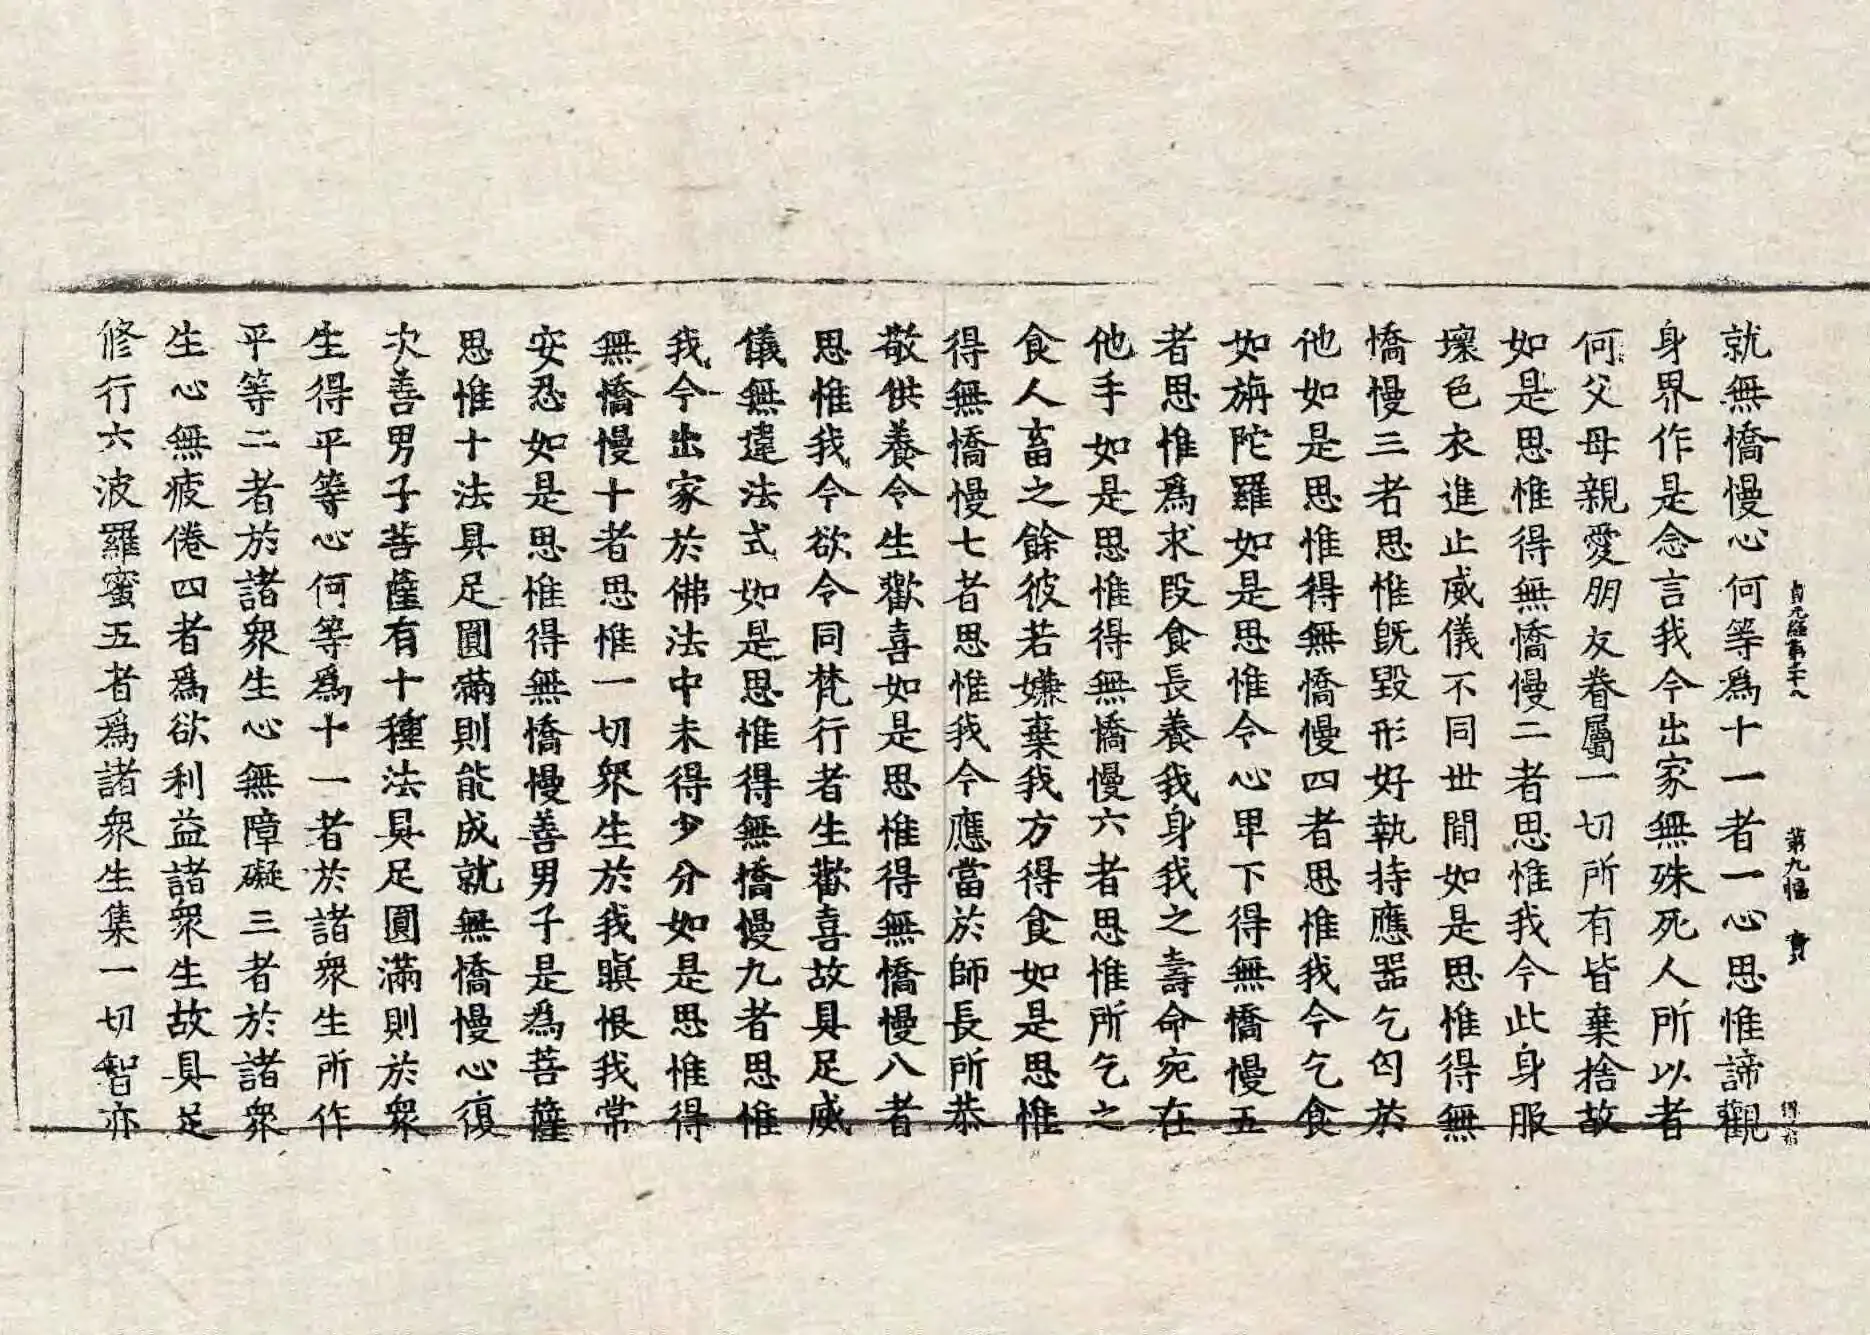 貞元經第三十八 第九幅 寶
就無憍慢心何等爲十一者一心思惟諦觀
身界作是念言我今出家無殊死人所以者
何父母親愛朋友眷屬一切所有皆棄捨故
如是思惟得無憍慢二者思惟我今此身服
壞色衣進止威儀不同世間如是思惟得無
憍慢三者思惟旣毀形好執持應器乞匃於
他如是思惟得無憍慢四者思惟我今乞食
如旃陀羅如是思惟令心卑下得無憍慢五
者思惟爲求段食長養我身我之壽命宛在
他手如是思惟得無憍慢六者思惟所乞之
食人畜之餘彼若嫌棄我方得食如是思惟
得無憍慢七者思惟我今應當於師長所恭
敬供養令生歡喜如是思惟得無憍慢八者
思惟我今欲令同梵行者生歡喜故具足威
儀無違法式如是思惟得無憍慢九者思惟
我今出家於佛法中未得少分如是思惟得
無憍慢十者思惟一切衆生於我瞋恨我常
安忍如是思惟得無憍慢善男子是爲菩薩
思惟十法具足圓滿則能成就無憍慢心復
次善男子菩薩有十種法具足圓滿則於衆
生得平等心何等爲十一者於諸衆生所作
平等二者於諸衆生心無障礙三者於諸衆
生心無疲倦四者爲欲利益諸衆生故具足
修行六波羅蜜五者爲諸衆生集一切智亦